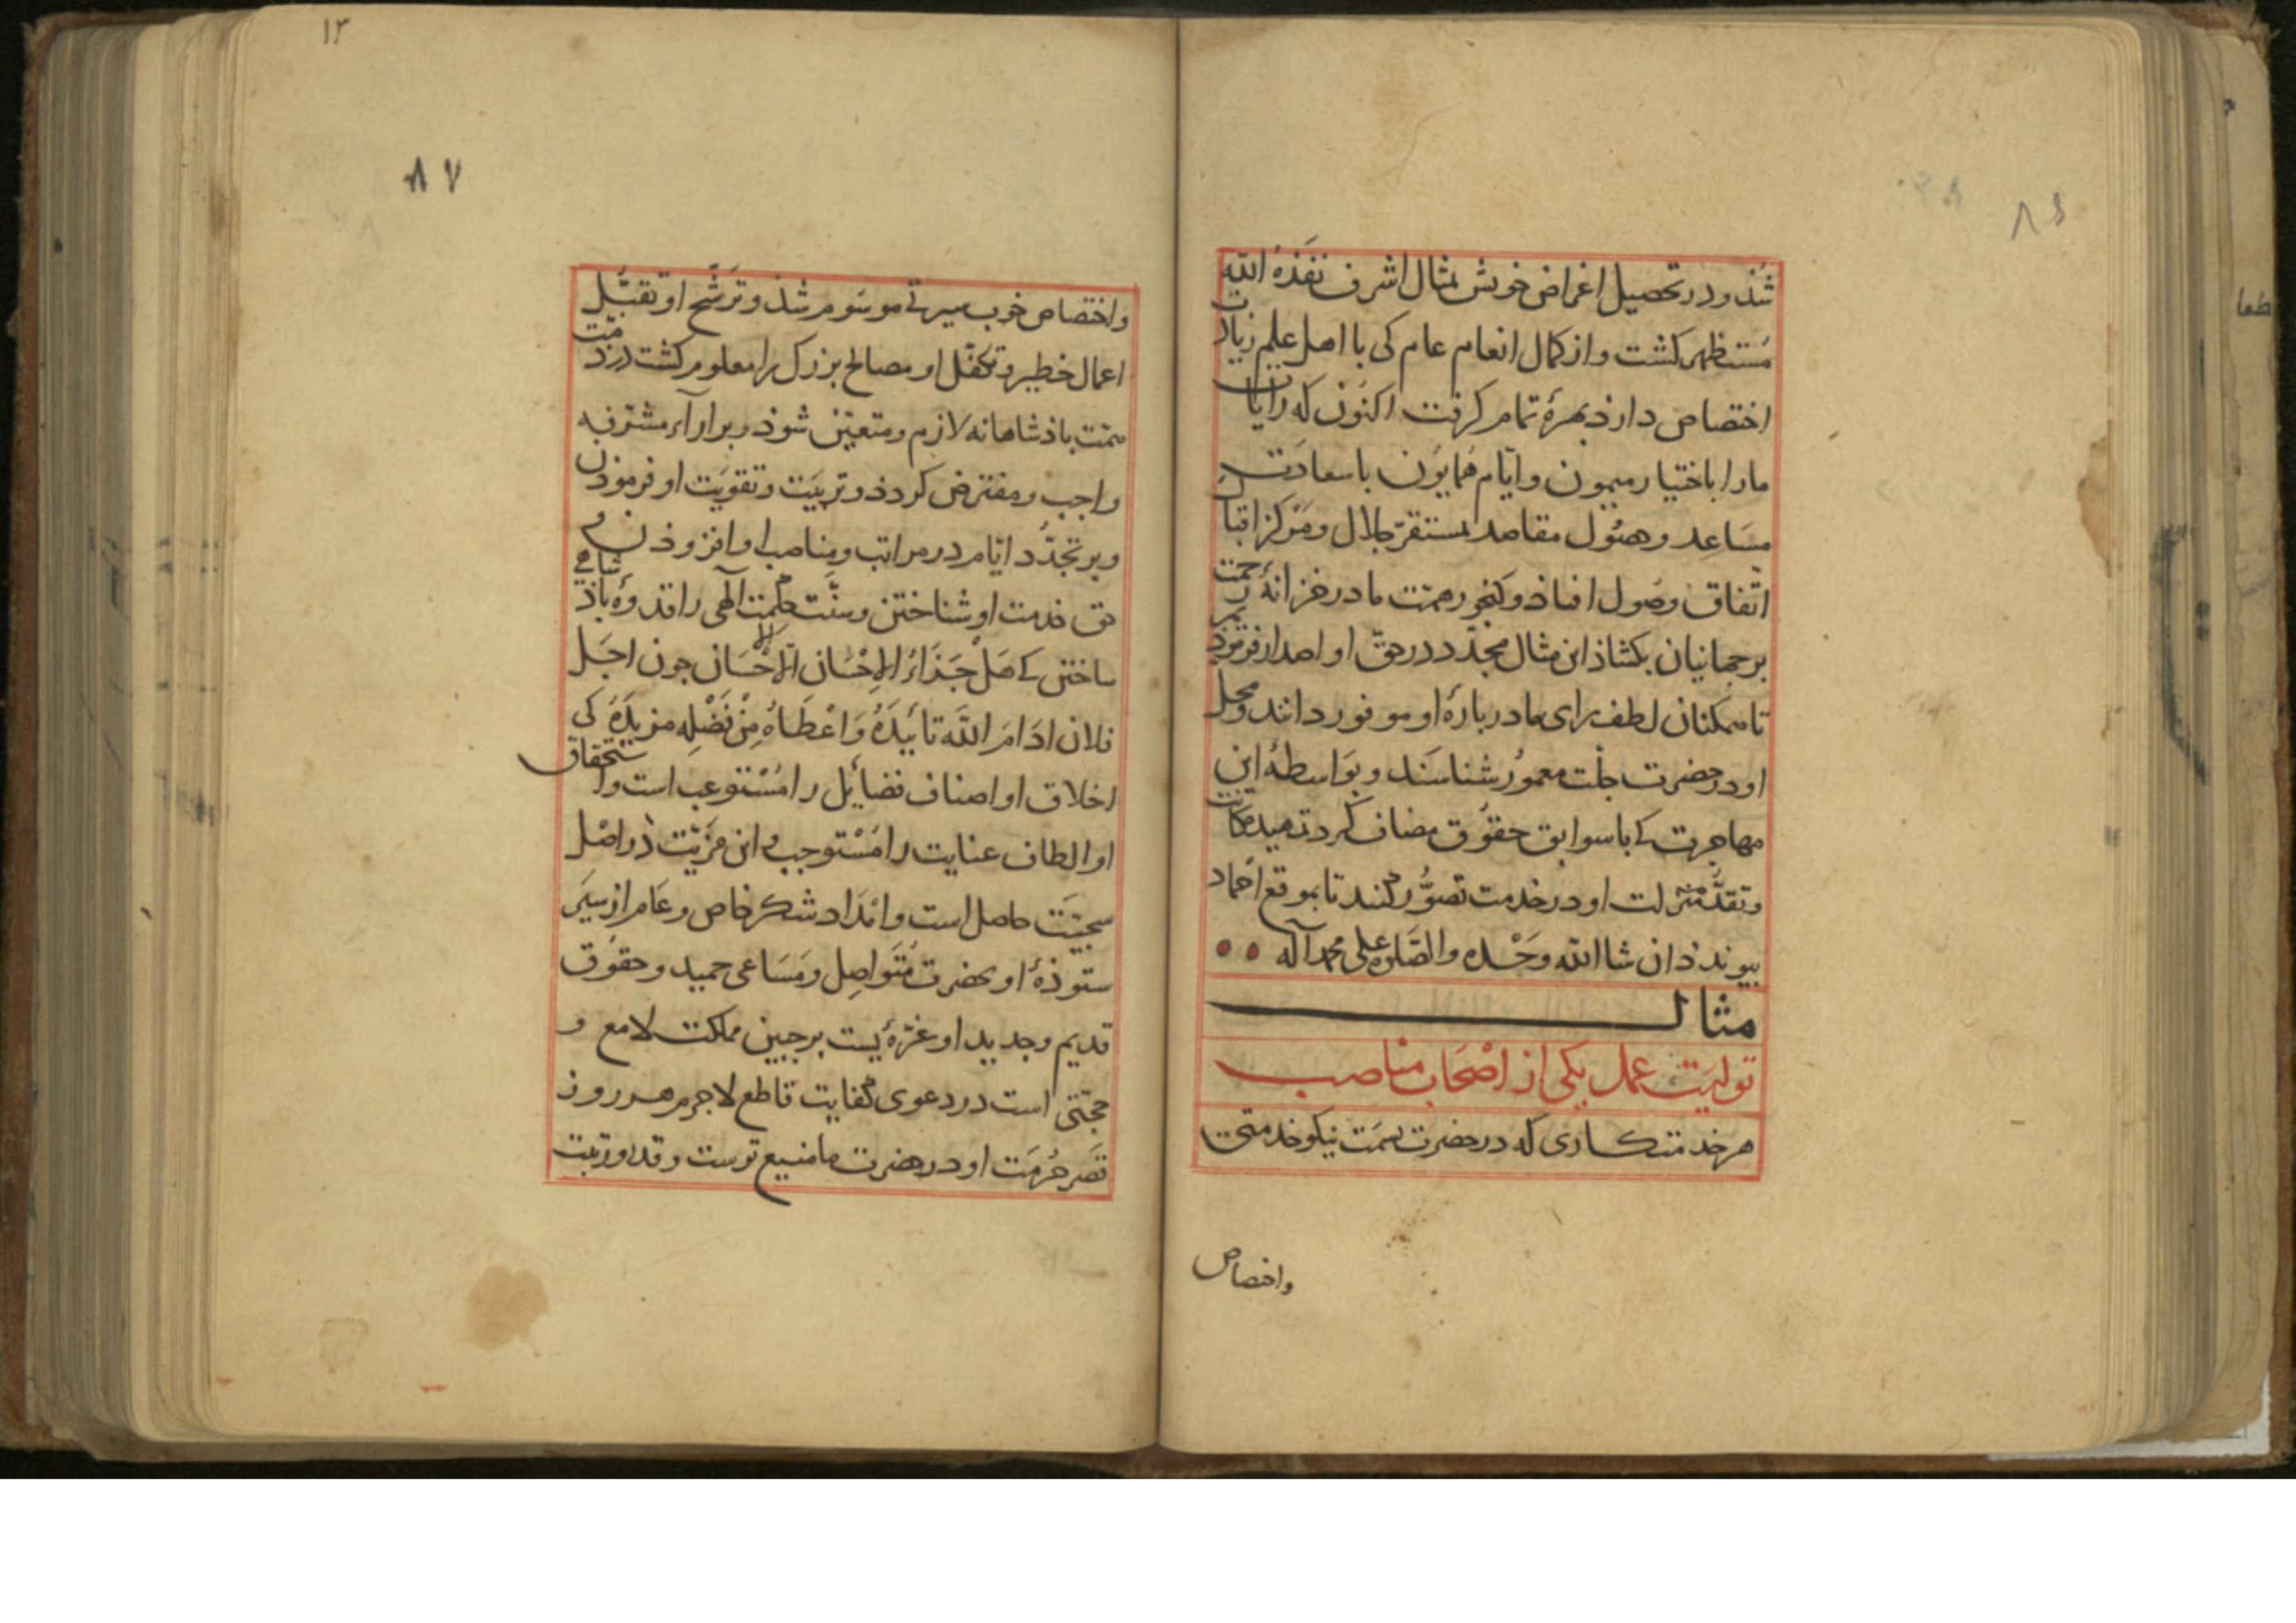 ٨٤
شذ و در تحصیل اغراض خویش بمثال اشرف نفّذه الله
مستظهر کشت و از کمال انعام عام کی با اهل علم زیادت
اختصاص دارذ بهرۀ تمام کرفت اکنون که رایات
مارا باختیار میمون و ایّام همایون با سعادت
مساعد و حصول مقاصد بمستقرّ جلال و مرکز اقبال
اتّفاق وصول افتاذ و کنجور همّت ما در خزانۀ رحمت
بر جهانیان بکشاذ این مثال مجدّد در حقّ او اصدار فرموذیم
تا همکنان لطف رای ما دربارۀ او موفور دانند و محل
او در حضرت جلّت معمور شناسند و بواسطۀ این
مهاجرت که با سوابق حقوق مضاف کرد
و تقدّم منزلت او در خدمت تصوّر کنند تا بموقع احماد
بیوندذ ان شا الله وحده والصلوة علی محمد و آله
مثال
تولیت عمل یکی از اصحاب مناصب
هر خدمتکاری که در حضرت بسمت نیکو خدمتی
واختصاص
١٣
٨٧
واختصاص خوب سیرتی موسوم شذ و ترشّح او تقبّل
اعمال خطیر و تکفّل او مصالح بزرک را معلوم کشت در ذمّت
همّت باذشاهانه لازم و متعیّن شوذ و بر آراء مشرّفه
واجب و مفترض کردذ و تربیت و تقویت او فرموذن
و بر تجدّد ایّام در مراتب و مناصب او افزوذن و
حق خدمت او شناختن و سنّت حکمت الهی را قدوۀ باذشاهی
ساختن که هل جزاء الاحسان الّا الاحسان جون اجلّ
فلان ادام الله تاییده و اعطاه من فضله مزیده کی
اخلاق او اصناف فضایل را مستوعب است و استحقاق
او الطاف عنایت را مستوجب و این مزیّت در اصل
سجیّت حاصل است و امداد شکر خاص و عام از سیر
ستوذۀ او بحضرت متواصل و مساعی حمید و حقوق
قدیم و جدید او غرّۀ یست بر جبین مملکت لامع و
حجّتی است در دعوی کفایت قاطع لاجرم هر روز
قصر حرمت او در حضرت ما منیع ترست و قدر و رتبت